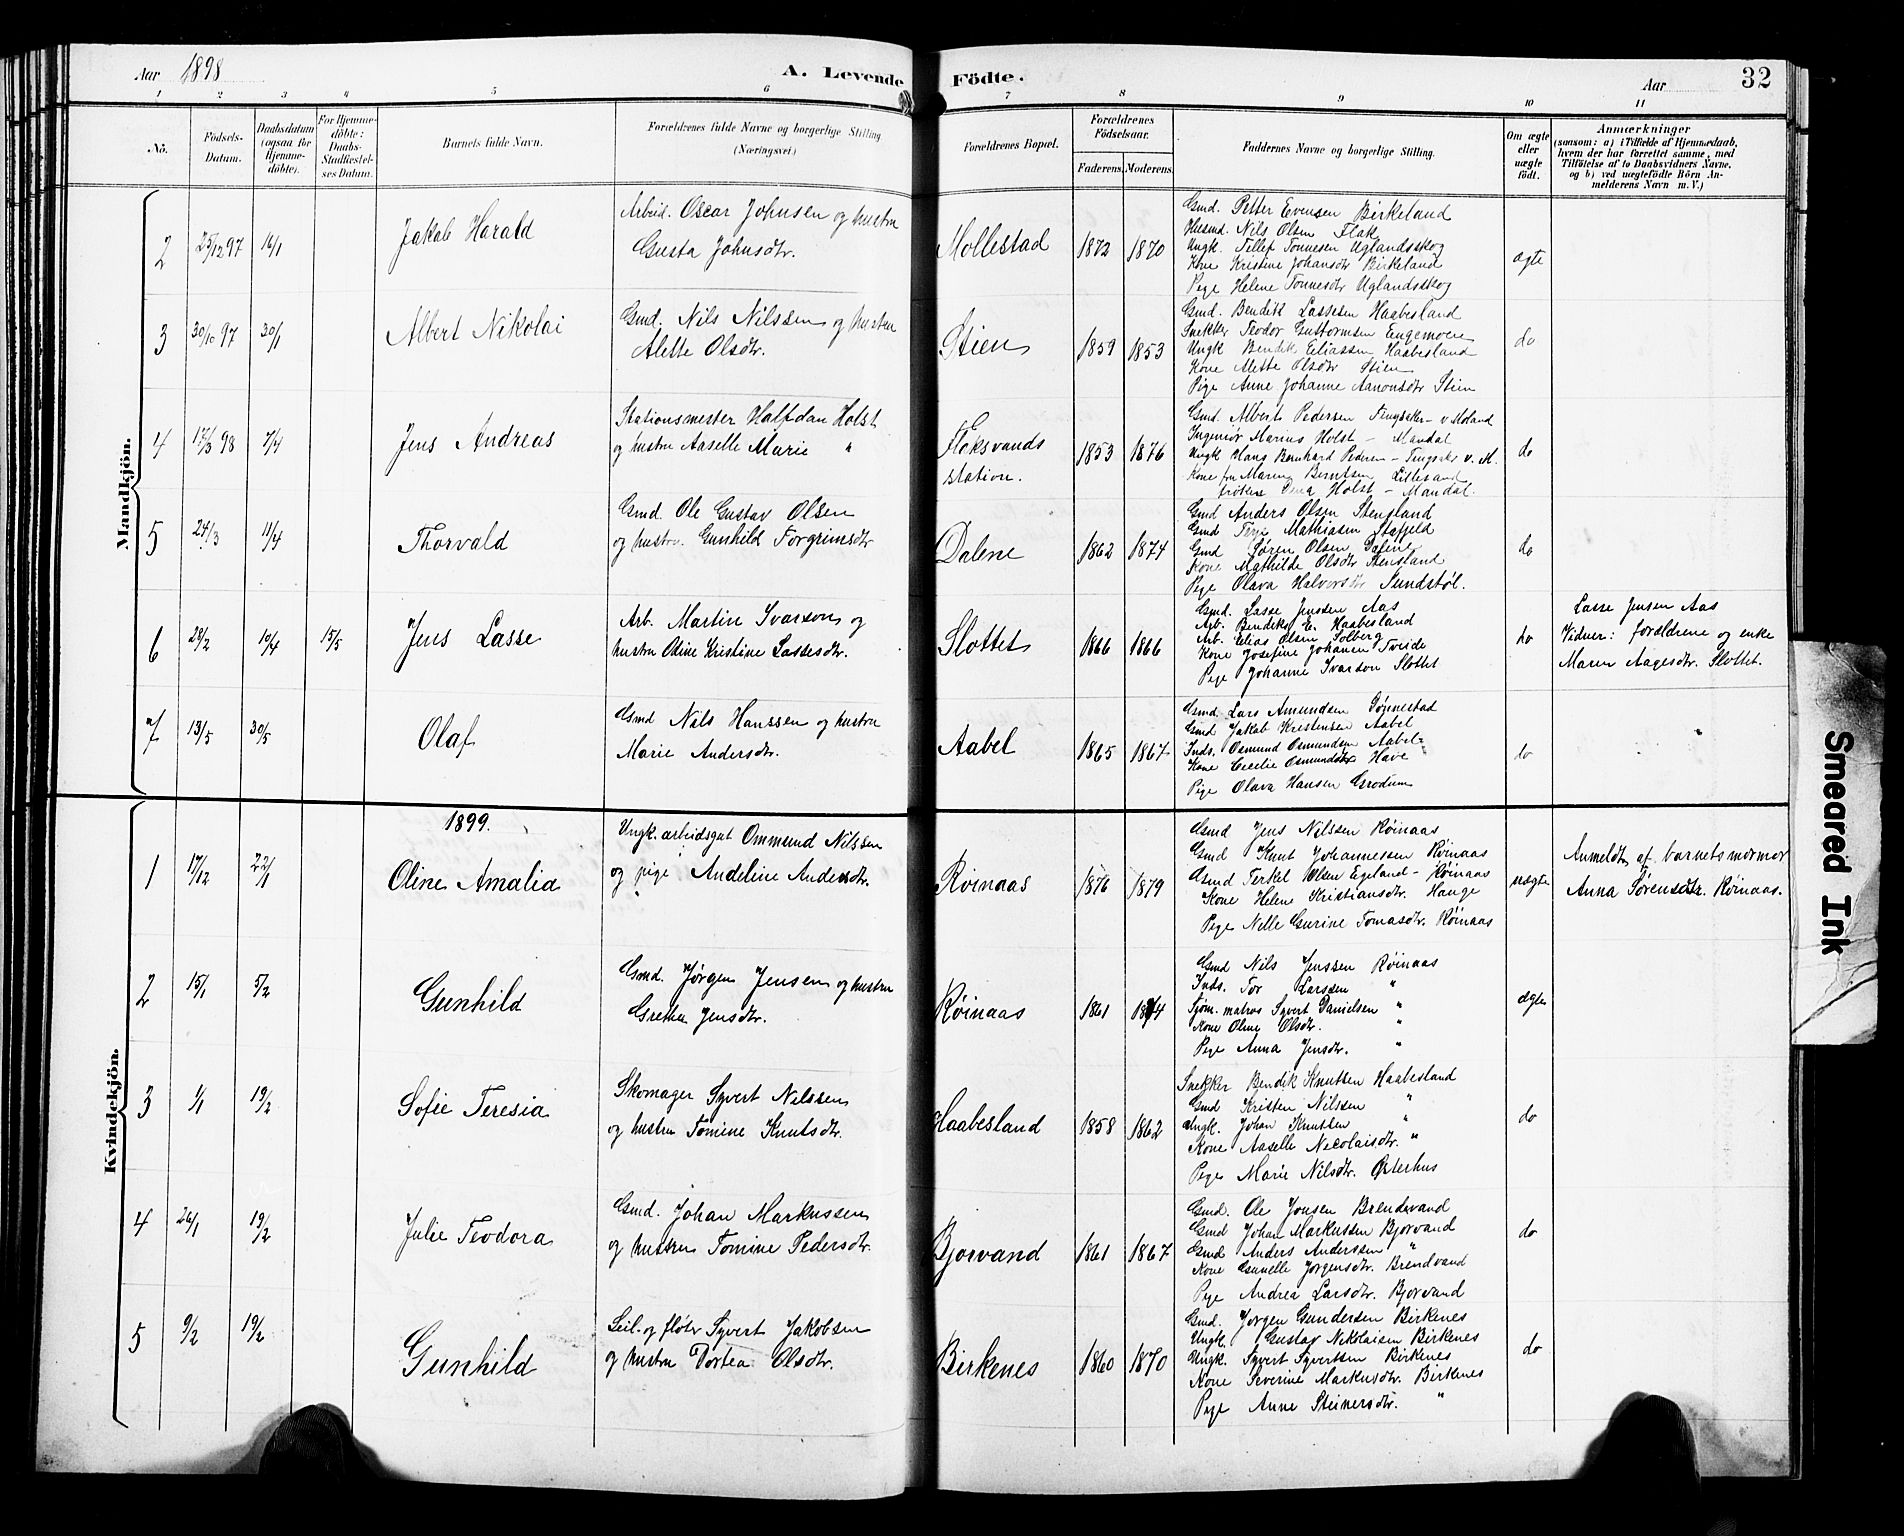 Aar 1898
A. Levende Födte.
Aar
32
1 2 3 4 5 6 7 8 9 10 11
No.
Födsels-Datum.
Daabsdatum (ogsaa for Hjemmedöbte).
For Hjemmedöbte: Daabs-Stadfæstelses Datum.
Barnets fulde Navn.
Forældrenes fulde Navne og borgerlige Stilling (Næringsvei.)
Forældrenes Bopæl.
Forældrenes Födselsaar.
Faderens. Moderens.
Faddernes Navne og borgerlige Stilling.
Om ægte eller uægte födt.
Anmærkninger
(saasom: a) i Tilfælde af Hjemmedaab,
hvem der har forrettet samme, med
Tilföielse af to Daabsvidners Navne,
og b) ved uægtefödte Börn Anmelderens Navn m. V.)
Mandkjön.
2 25/12 97 16/1 Jakob Harald
Arbeid. Oscar Johnsen og hustru
Gusta Johnsdtr.
Mollestad 1872 1870
Gmd. Petter Evensen Birkeland
Husmd. Nils Olsen Flak
Ungk. Tellef Tonnesen Uglandsskog
Kone Kristine Johansdtr Birkeland
Pige Helene Tonnesdtr Uglandsskog
ægte
3 30/10 97 30/1 Albert Nikolai
Gmd. Nils Nilssen og hustru
Alette Olsdtr.
Stien 1859 1853
Gmd. Bendikt Lassesen Haabesland
Snekker Teodor Guttormsen Engemoen
Ungk Bendik Eliassen Haabesland
Kone Alette Olsdtr Stien
Pige Anne Johanne Aanonsdtr Stien
do
4 17/3 98 7/4 Jens Andreas
Stationsmester Halfdan Holst
og hustru Aaselle Marie "
Fleksvands station. 1853 1876
Gmd. Albert Pedersen v Moland
Ingeniør Marius Holst - Mandal
Ungk Hans Bernhard Pedersen v. M.
Kone fru Maren Berntsen Lillesand
frøken Holst - Mandal.
do
5 24/3 11/4 Thorvald
Gmd. Ole Gustav Olsen
og hustru Gunhild Torgrimsdtr
Dalene 1862 1874
Gmd Anders Olsen Stensland
Gmd Terje Mathiasen
Gmd Søren Olsen Dalene
Kone Mathilde Olsdtr Stensland
Pige Olava Halvorsdtr Sundstøl.
do
6 28/2 10/4 15/5 Jens Lasse
Arb. Martin Ivarson og
hustru Oline Kristine Lassesdtr.
Slottet 1866 1866
Gmd. Lasse Jenssen Aas
Arb. Bendiks E. Haabesland
Arb. Elias Olsen Solberg
Kone Josefine Johansen Tveide
Pige Johanne Ivarson Slottet
do
Lasse Jensen Aas
Vidner: forældrene og enke
Maren Aagesdtr. Slottet.
7 13/5 30/5 Olaf
Gmd Nils Hanssen og hustru
Marie Andersdtr.
Aabel 1865 1867
Gmd. Lars Amundsen Tønnestad
Gmd Jakob Kristensen Aabel
Inds. Osmund Osmundsen Aabel
Kone Cecelie Osmundsdtr Have
Pige Olava Hansen Grødum
do
Kvindekjön.
1899.
1 17/12 22/1 Oline Amalia
Ungk. arbeidsgut Ommund Nilssen
og pige Andeline Andersdtr.
Røinaas 1876 1879
Gmd Jens Nilssen Røinaas
Gmd Knut Johannessen Røinaas
Gmd Terkel Olsen Egeland - Røinaas
Kone Helene Kristiansdtr. Hauge
Pige Nelle Gurine Tomasdtr. Røinaas
uægte
Anmeldt af barnets mormor
Anna Sørensdtr. Røinaas.
2 15/1 5/2 Gunhild
Gmd. Jørgen Jensen og hustru
Grethe Jensdtr.
Røinaas 1861 1874
Gmd Nils Jenssen Røinaas
Inds. Tor Larssen "
Sjøm. matros Syvert Danielsen "
Kone Oline Olsdtr. "
Pige Anna Jensdtr. "
ægte
3 1/1 19/2 Sofie Teresia
Skomager Syvert Nilssen
og hustru Tomine Knutsdtr.
Haabesland 1858 1862
Snekker Bendik Knutsen Haabesland
Gmd Kristen Nilssen "
Ungk. Johan Knutsen "
Kone Aaselle Nicolaisdtr. "
Pige Marie Nilsdtr. Østerhus
do
4 26/1 19/2 Julie Teodora
Gmd. Johan Markussen
og hustru Tomine Pedersdtr.
Bjorvand 1861 1867
Gmd. Ole Jonsen Brendvand
Gmd Johan Markussen Bjorvand
Gmd Anders Anderssen "
Kone Gunelle Jorgensdtr. Brendvand
Pige Andrea Larsdtr. Bjorvand
do
5 9/2 19/2 Gunhild
Seil- og fløter Syvert Jakobsen
og hustru Dortea Olsdtr.
Birkenes 1860 1870
Gmd. Jorgen Gundersen Birkenes
Ungk. Gustav Nikolaisen Birkenes
Ungk. Syvert Syvertsen Birkenes
Kone Severine Markusdtr. Birkenes
Pige Anne Steinersdtr. "
do
Smeared Ink